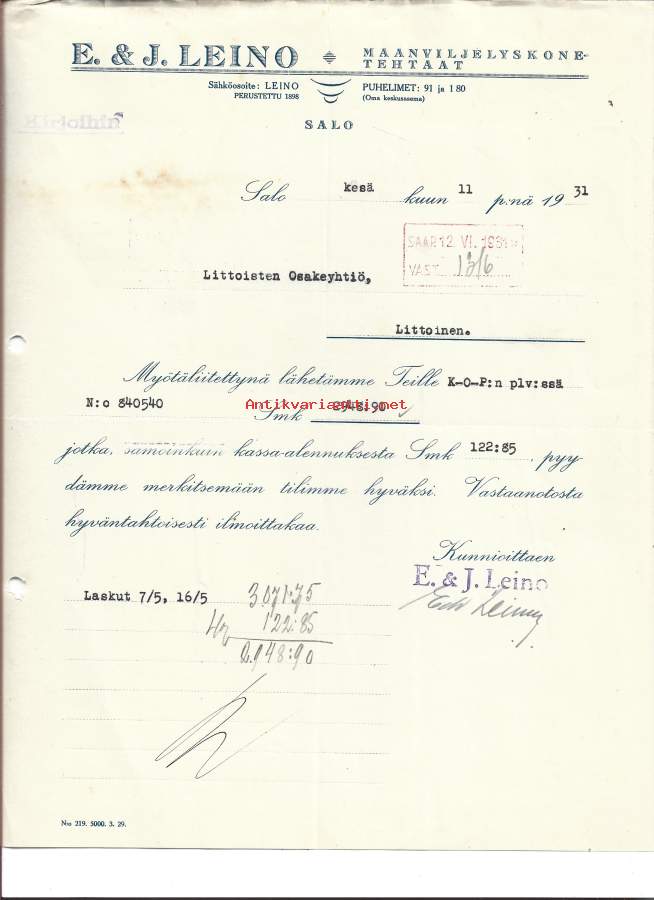 E. & J. LEINO
MAANVILJELYSKONE-
TEHTAAT
Sähköosoite: LEINO
PERUSTETTU 1898
PUHELIMET: 91 ja 180
(Oma keskusasema)
SALO
Kirjoihin
Salo kesä kuun 11 p:nä 1931
SAAP. 12. VI. 1931
VAST. 13/6
Littoisten Osakeyhtiö,
Littoinen.
Myötäliitettynä lähetämme Teille K-O-P:n plv:ssä
N:o 840540 Smk 2948:90
Antikvariaatti.net
jotka, samoinkuin kassa-alennuksesta Smk 122:85, pyy-
dämme merkitsemään tilimme hyväksi. Vastaanotosta
hyväntahtoisesti ilmoittakaa.
Kunnioittaen
E. & J. Leino
Laskut 7/5, 16/5
3.071:75
122:85
2.948:90
N:o 219. 5000. 3. 29.